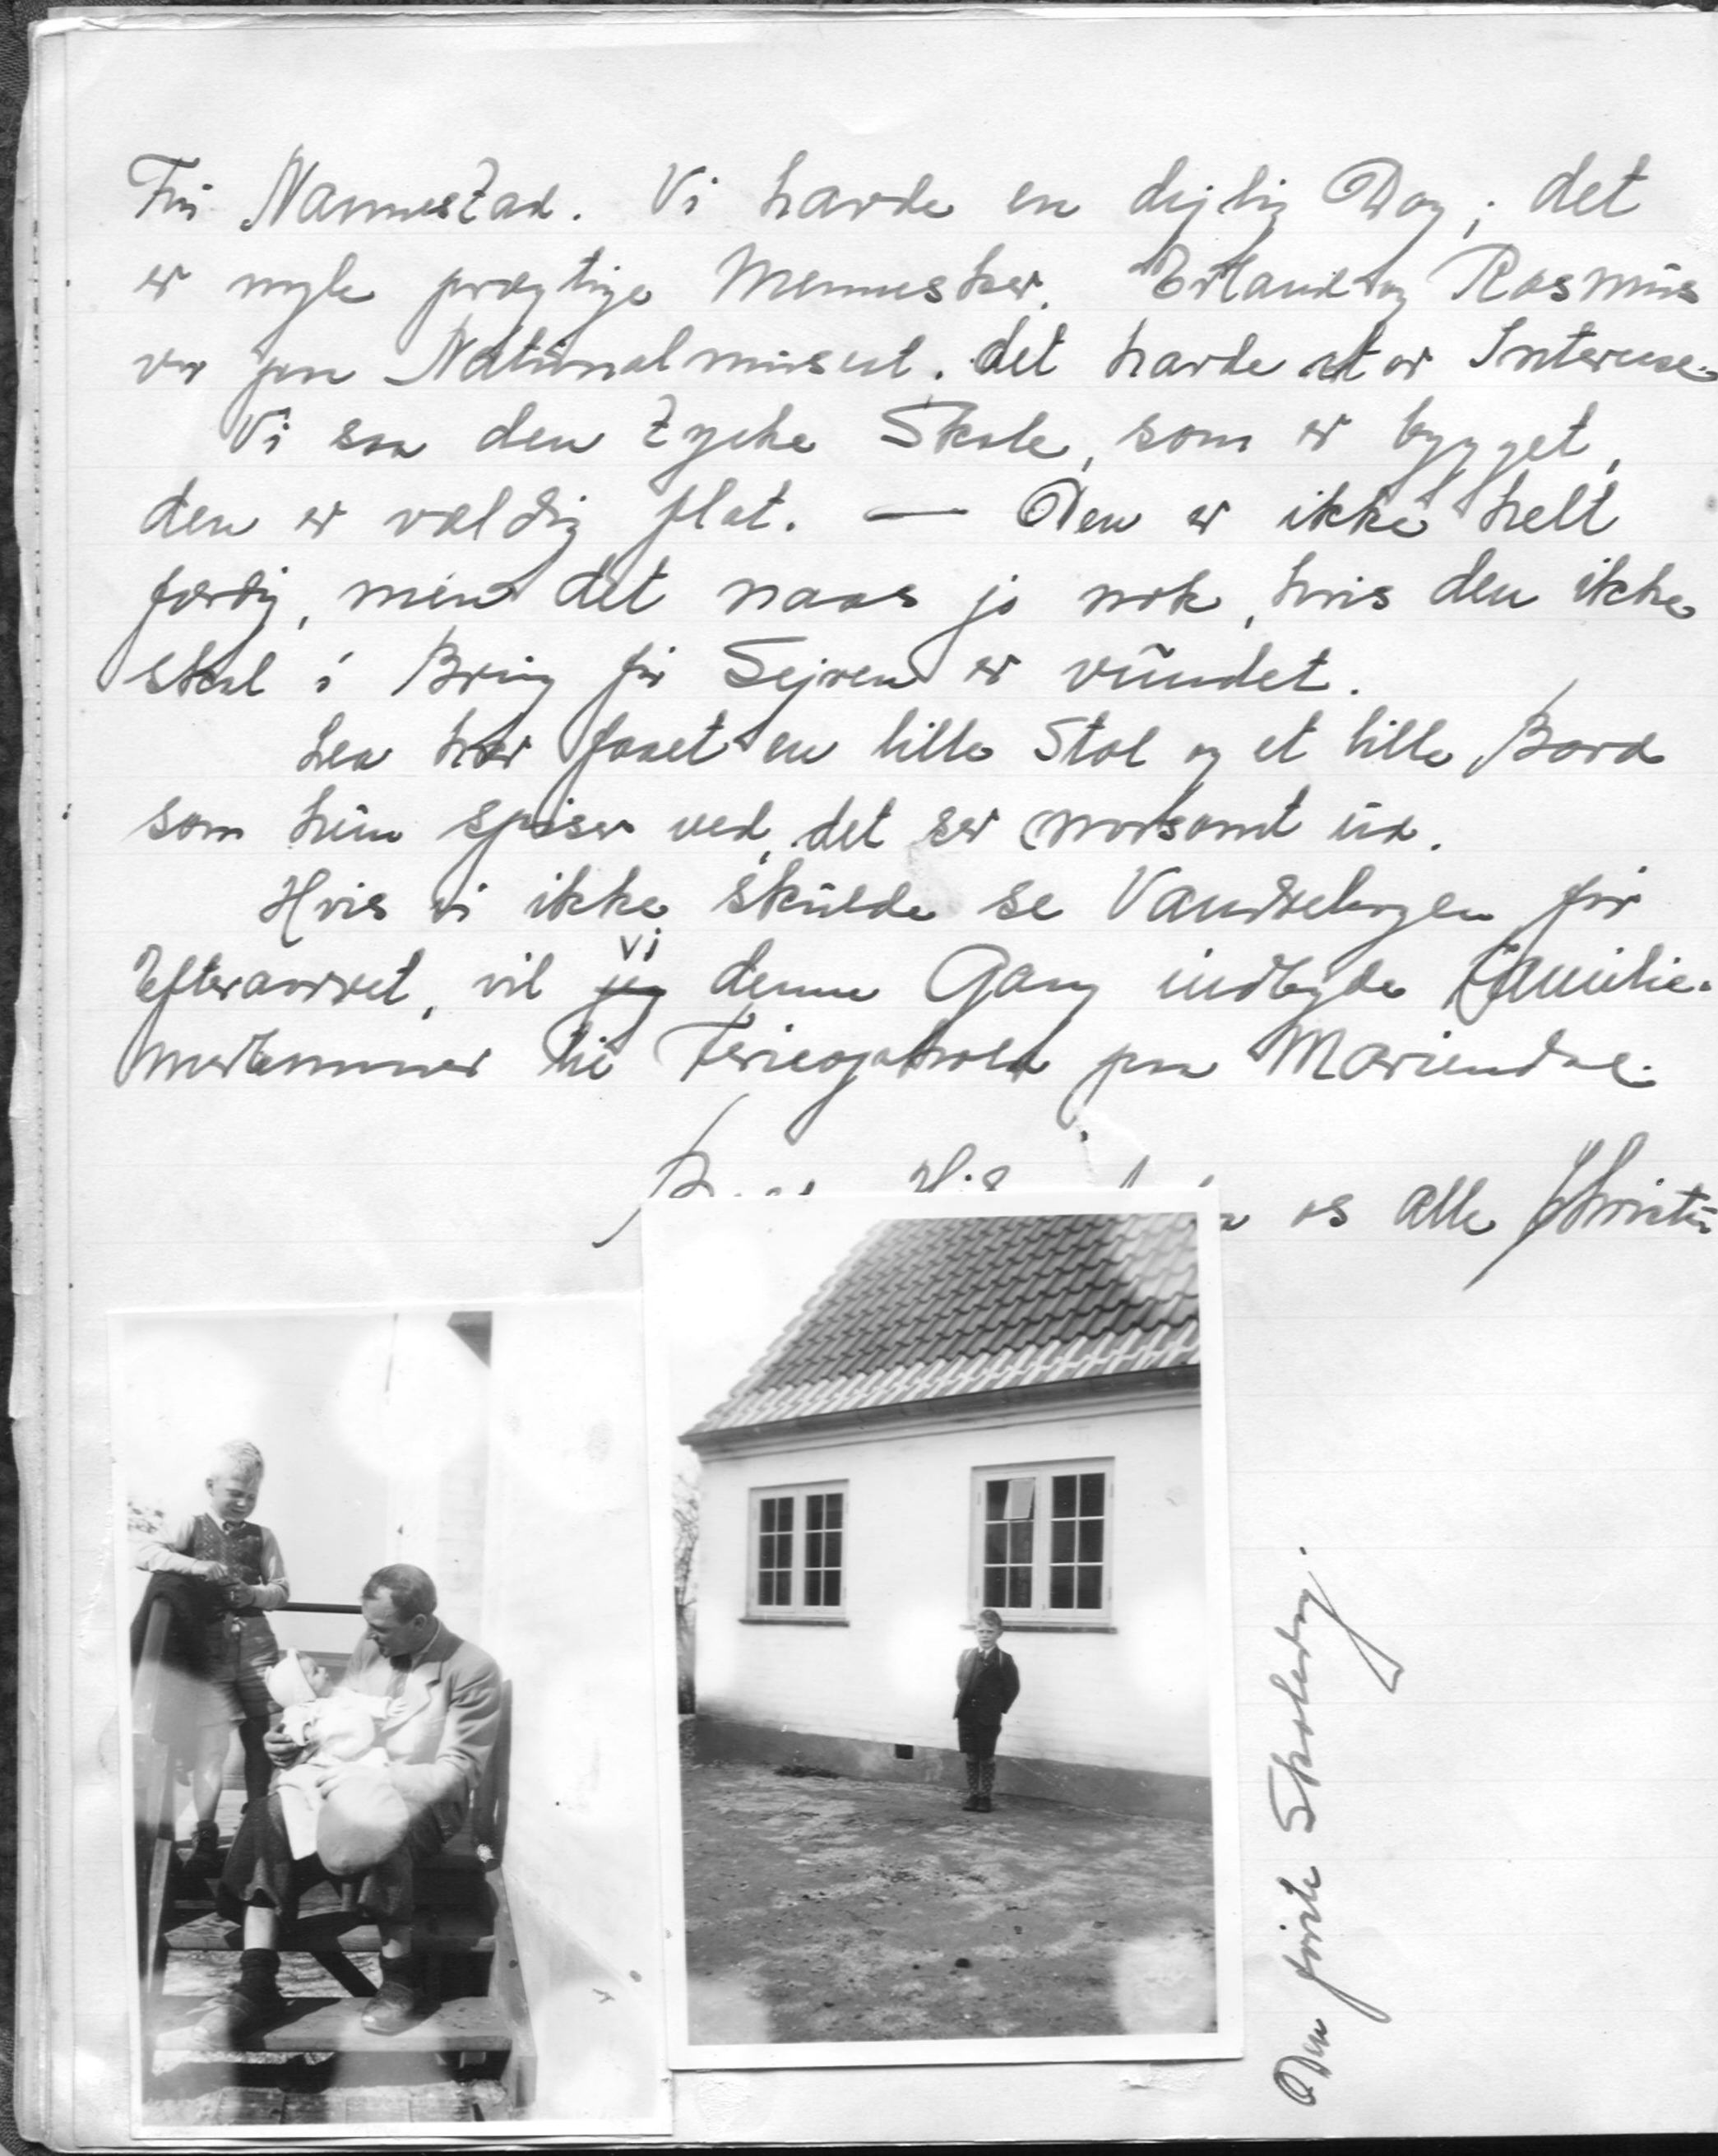 Fru Nannestad. Vi havde en dejlig Dag; det
er nogle prægtige Mennesker. Erland og Rasmus
var paa Nationalmuseet. det havde stor Interesse.
Vi saa den tyske Skole, som er bygget,
den er vældig flot. — Den er ikke helt
færdig, men det naas jo nok, hvis den ikke
skal i Brug før Sejren er vundet.
Lea har faaet en lille Stol og et lille Bord
som hun spiser ved, det ser morsomt ud.
Hvis vi ikke skulde se Vandrebogen før
Efteraaret, vil jeg vi denne Gang indbyde Familie-
medlemmer til Ferieophold paa Mariendal.
os alle
Den første Skoledag.